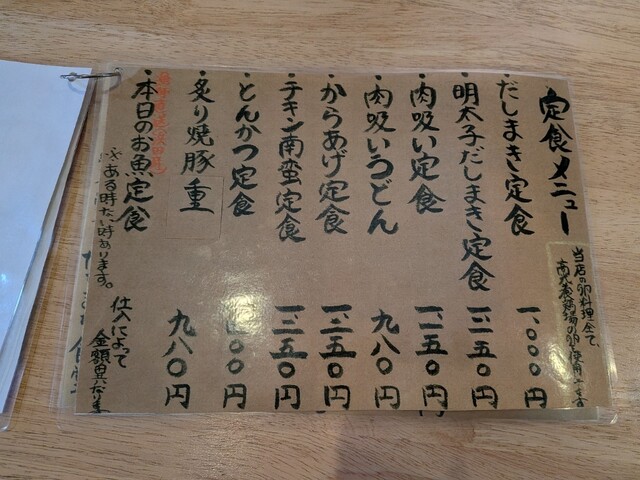 定食メニュー
当店の卵料理全て
・だしまき定食 一、〇〇〇円
・明太子だしまき定食 一、二五〇円
・肉吸い定食 一、二五〇円
・肉吸いうどん 九八〇円
・からあげ定食 一、二五〇円
・チキン南蛮定食 一、二五〇円
・とんかつ定食
・炙り焼豚重 九八〇円
・本日のお魚定食
※ある時ない時あります。
仕入によって
金額異なります